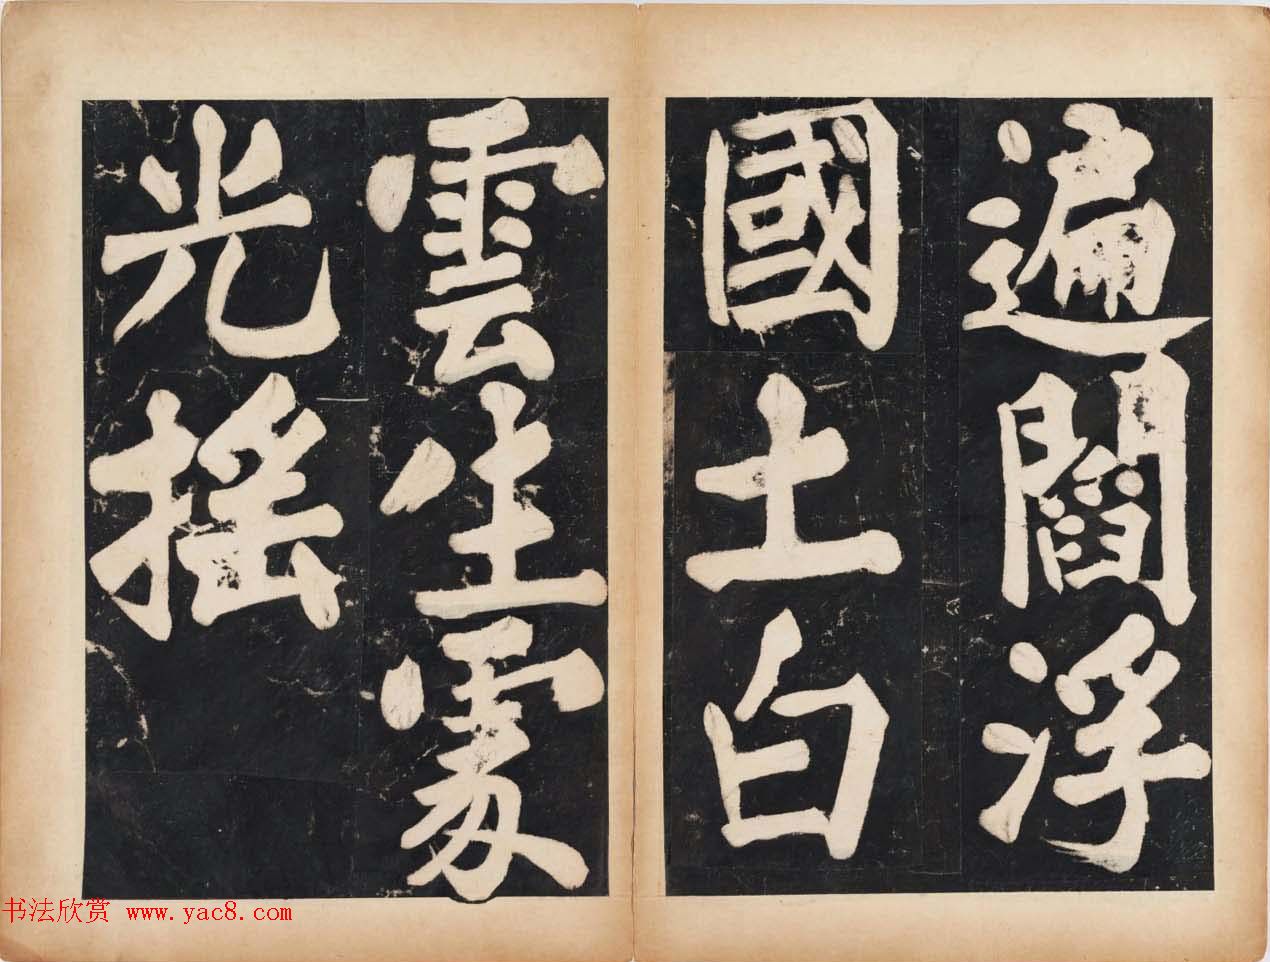 遍閻浮
國土白
雲生處
光摇
书法欣赏 www.yac8.com